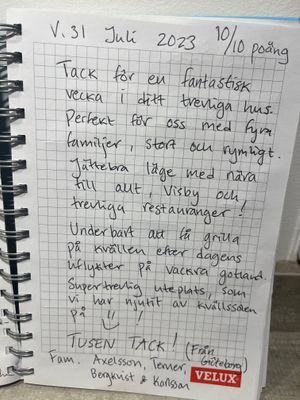 V. 31 Juli 2023 10/10 poäng
Tack för en fantastisk
vecka i ditt trevliga hus.
Perfekt för oss med fyra
familjer, stort och rymligt.
Jättebra läge med nära
till allt, Visby och
trevliga restauranger!
Underbart att få grilla
på kvällen efter dagens
utflykter på vackra gotland.
Supertrevlig uteplats, som
vi har njutit av kvällssolen
på !! !
TUSEN TACK! (Från Göteborg)
Fam. Axelsson,
Bergkvist & Karlsson
VELUX